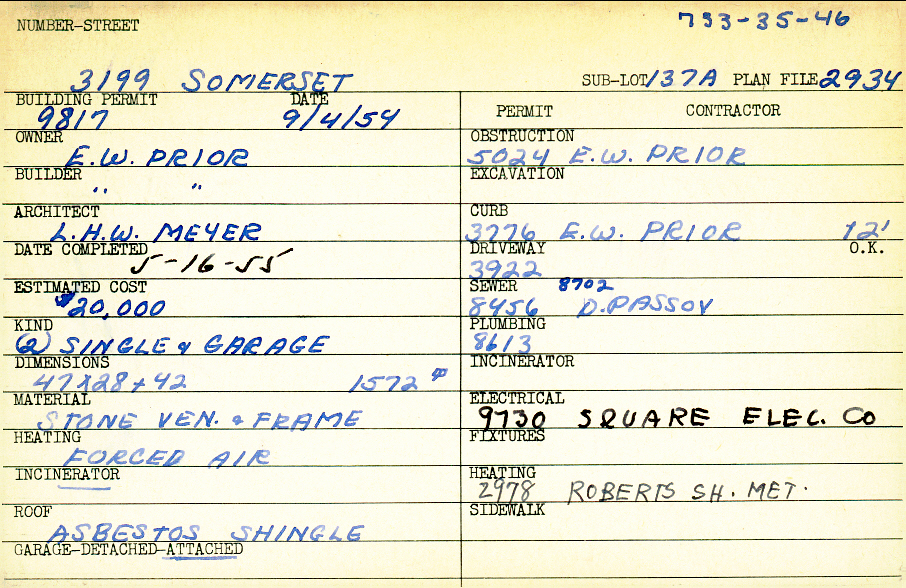 733-35-46
NUMBER-STREET
3199 SOMERSET SUB-LOT 137A PLAN FILE 2934
BUILDING PERMIT DATE
9817 9/4/54
PERMIT CONTRACTOR
OWNER
E.W. PRIOR
OBSTRUCTION
5024 E.W. PRIOR
BUILDER
" "
EXCAVATION
ARCHITECT
L.H.W. MEYER
CURB
3776 E.W. PRIOR 12'
DATE COMPLETED
5-16-55
DRIVEWAY O.K.
3922
ESTIMATED COST
$20,000
SEWER 8702
8456 D.PASSOV
KIND
(2) SINGLE & GARAGE
PLUMBING
8613
DIMENSIONS
47X28+42 1572 #
INCINERATOR
MATERIAL
STONE VEN. & FRAME
ELECTRICAL
9730 SQUARE ELEC. CO
HEATING
FORCED AIR
FIXTURES
INCINERATOR
HEATING
2978 ROBERTS SH. MET.
ROOF
ASBESTOS SHINGLE
SIDEWALK
GARAGE-DETACHED-ATTACHED